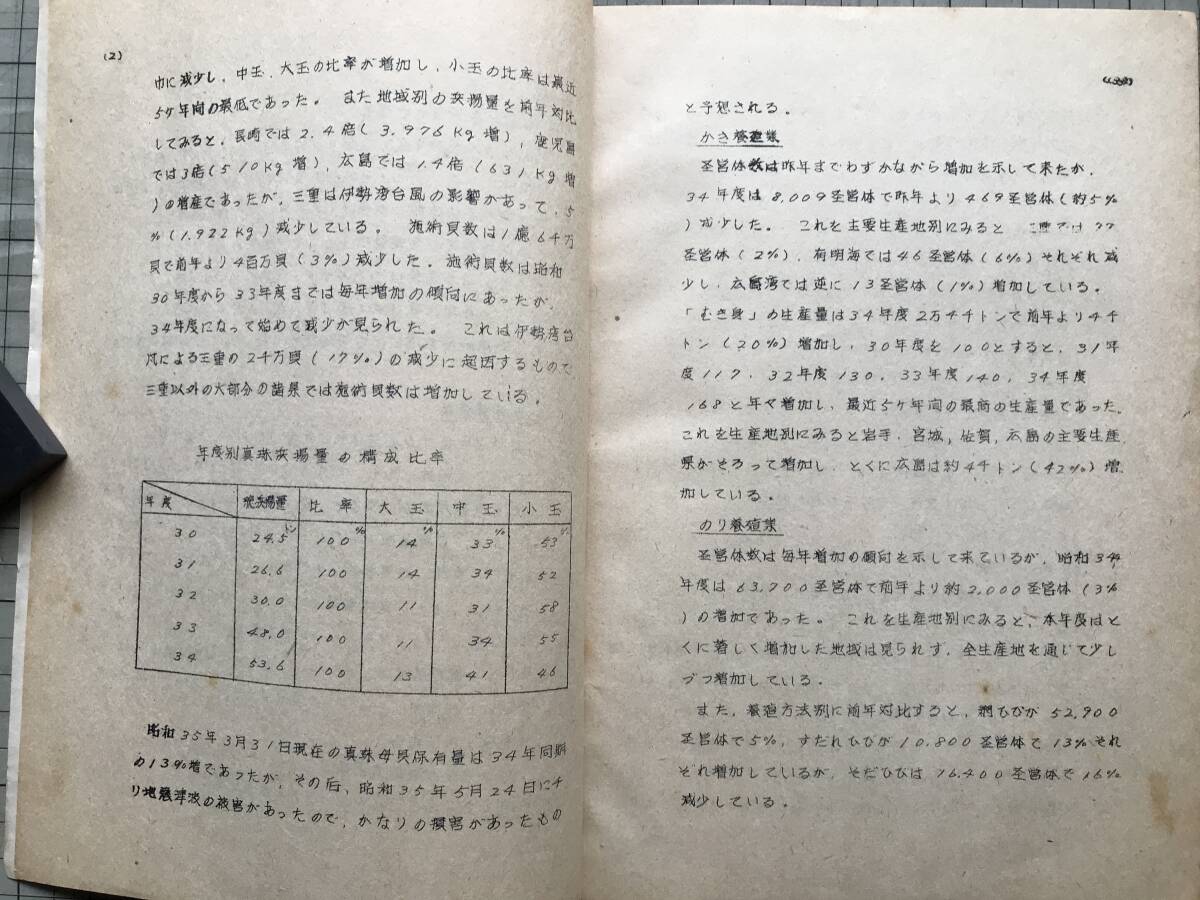 (2)
巾に減少し、中玉、大玉の比率が増加し、小玉の比率は最近
5ヶ年間の最低であった。 また地域別の浜揚量を前年対比
してみると、長崎では2.4倍(3.976Kg増)、鹿児島
では3倍(510Kg増)、広島では1.4倍(631Kg増
)の増産であったが、三重は伊勢湾台風の影響があって、5
%(1.922Kg)減少している。 施術貝数は1億6千万
貝で前年より4百万貝(3%)減少した。施術貝数は昭和
30年度から33年度までは毎年増加の傾向にあったが、
34年度になって始めて減少が見られた。 これは伊勢湾台
風による三重の2千万貝(17%)の減少に起因するもので
三重以外の大部分の県では施術貝数は増加している。
年度別真珠浜揚量の構成比率
年度 浜揚量 比率 大玉 中玉 小玉
30 24.5トン 100% 14% 33% 53%
31 26.6 100 14 34 52
32 30.0 100 11 31 58
33 48.0 100 11 34 55
34 53.6 100 13 41 46
昭和35年3月31日現在の真珠母貝保有量は34年同期
の13%増であったが、その后、昭和35年5月24日にチ
リ地震津波の被害があったので、かなりの損害があったもの
と予想される。
かき養殖業
圣営体数は昨年までわずかながら増加を示して来たが、
34年度は8,009圣営体で昨年より469圣営体(約5%
)減少した。 これを主要生産地別にみると
圣営体(2%)、有明海では46圣営体(6%)それぞれ減
少し、広島湾では逆に13圣営体(1%)増加している。
「むき身」の生産量は34年度2万4千トンで前年より4千
トン(20%)増加し、30年度を100とすると、31年
度117、32年度130、33年度140、34年度
168と年々増加し、最近5ヶ年間の最高の生産量であった。
これを生産地別にみると岩手、宮城、佐賀、広島の主要生産
県がそろって増加し、とくに広島は約4千トン(42%)増
加している。
のり養殖業
圣営体数は毎年増加の傾向を示して来ているが、昭和34
年度は63,700圣営体で前年より約2,000圣営体(3%
)の増加であった。 これを生産地別にみると、本年度はと
くに著しく増加した地域は見られず、全生産地を通じて少し
づつ増加している。
また、養殖方法別に前年対比すると、網ひびが52,900
圣営体で5%、すだれひびが10,800圣営体で13%それ
ぞれ増加しているが、そだひびは16,400圣営体で16%
減少している。